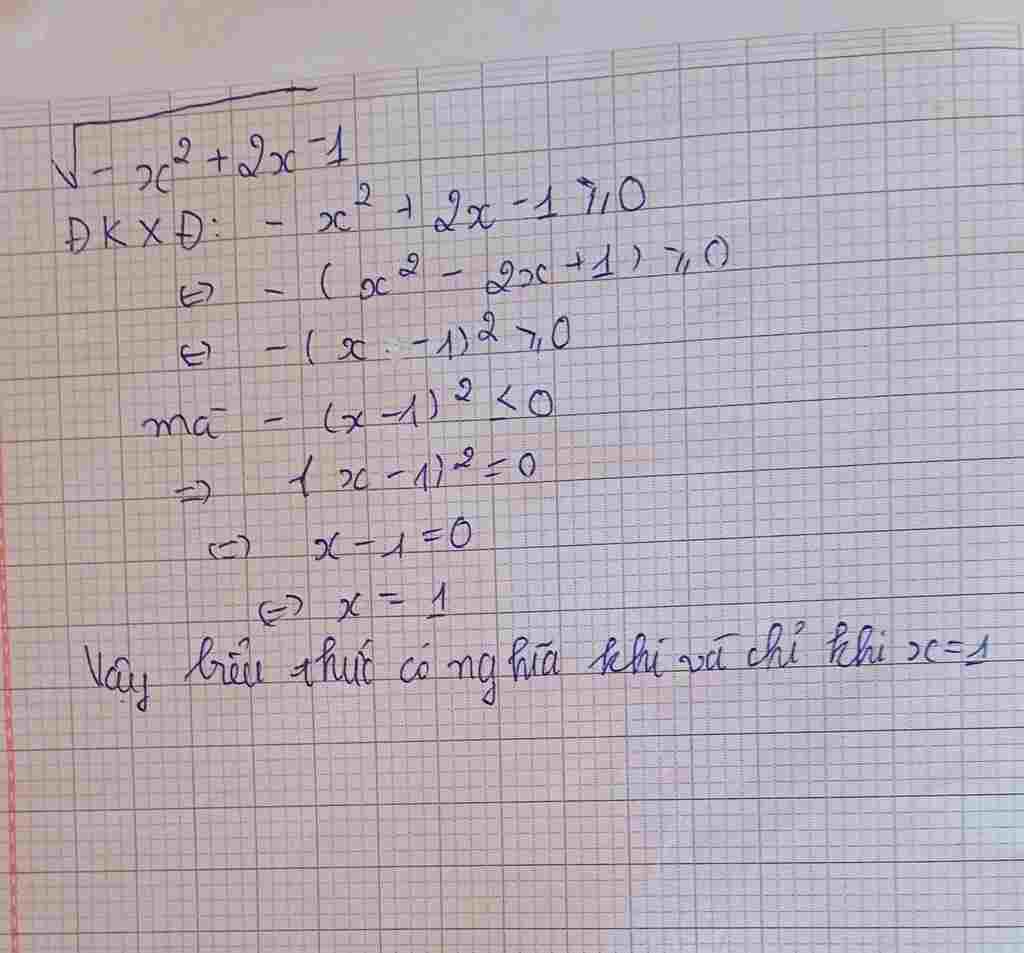 √-x² + 2x - 1
ĐKXĐ: - x² + 2x - 1 ⩾ 0
⇔ - (x² - 2x + 1) ⩾ 0
⇔ - (x - 1)² ⩾ 0
mà - (x - 1)² < 0
⇒ (x - 1)² = 0
⇔ x - 1 = 0
⇔ x = 1
Vậy biểu thức có nghĩa khi và chỉ khi x = 1